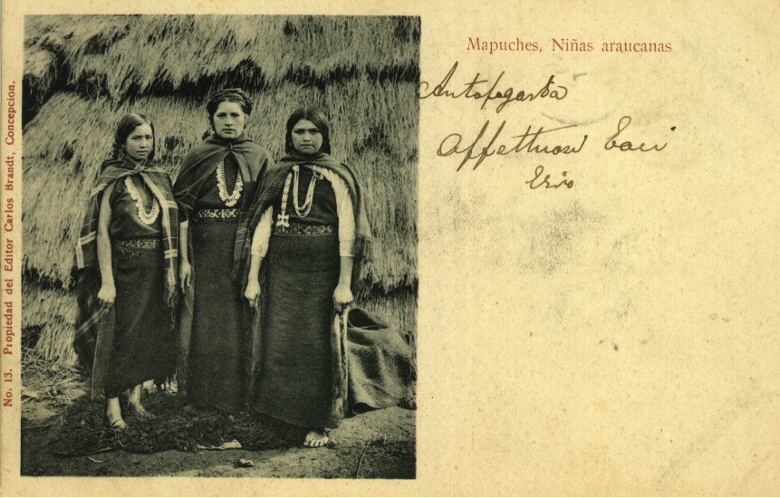 Mapuches, Niñas araucanas
Antofagasta
Affettuosi baci
No. 13. Propiedad del Editor Carlos Brandt, Concepcion.